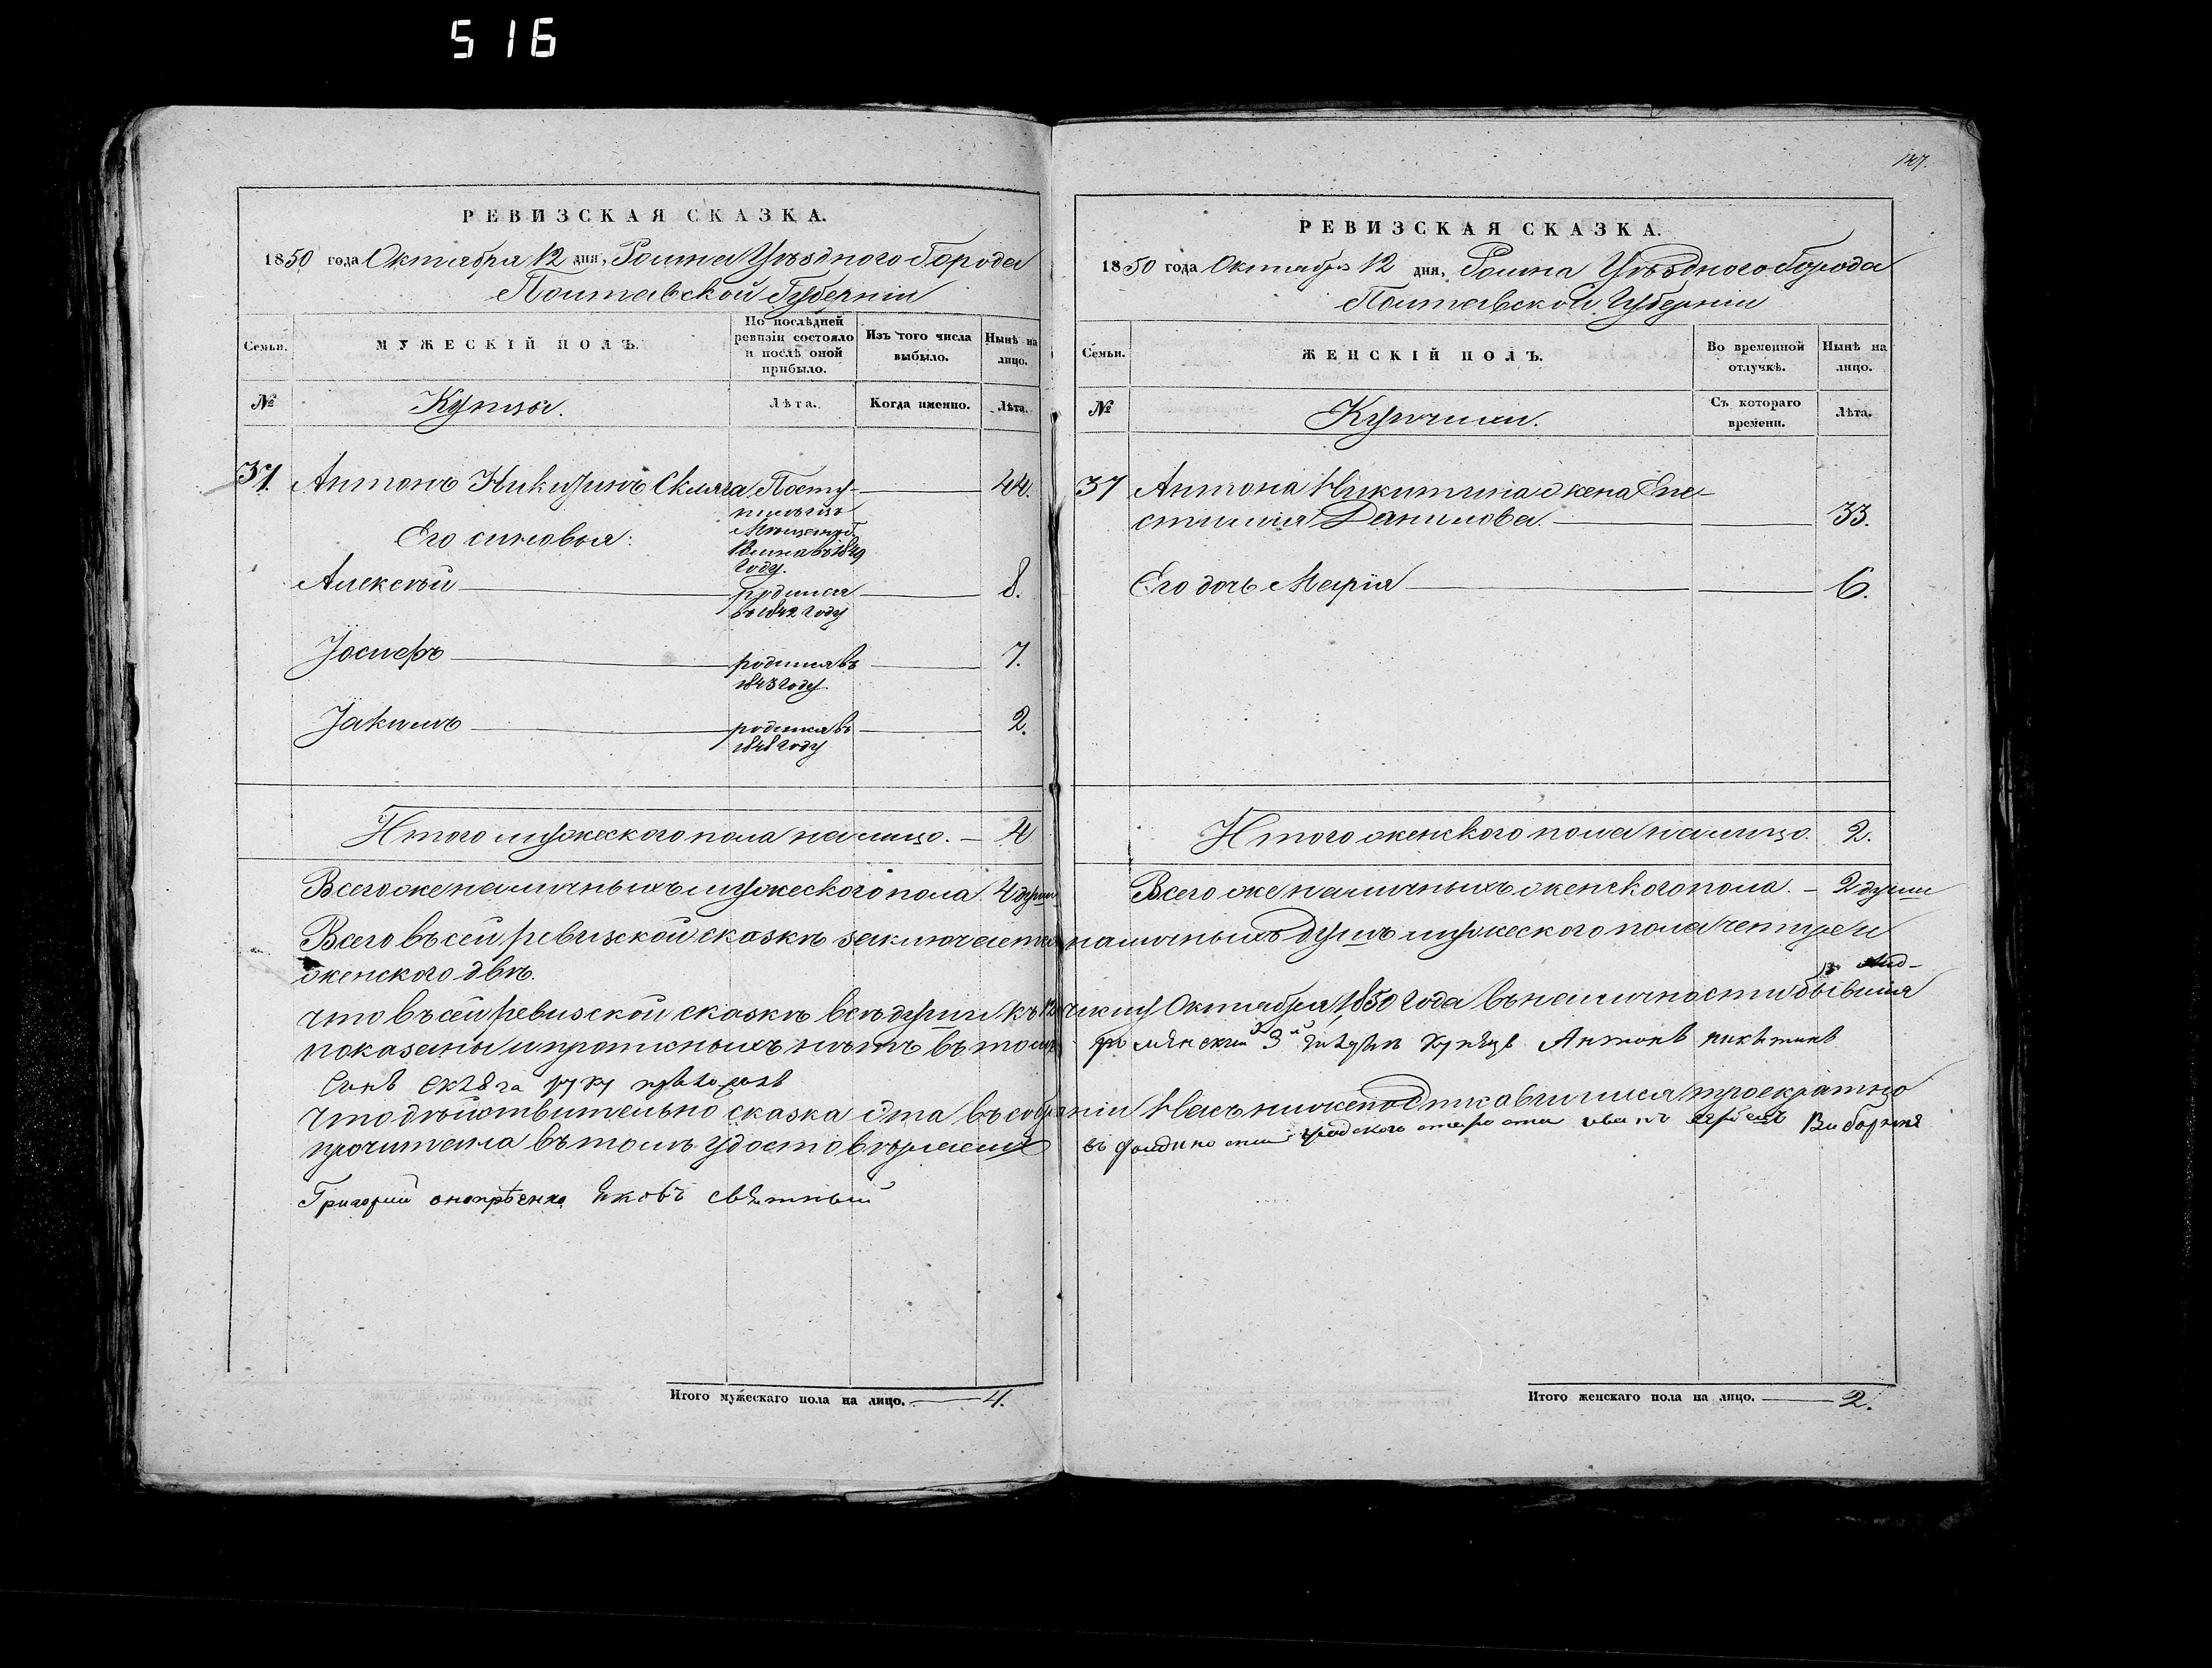 516
РЕВИЗСКАЯ СКАЗКА.
1850 года Октября 12 дня, Ромна Уѣзднаго Города
Полтавской Губерніи
Семьи.
МУЖЕСКІЙ ПОЛЪ.
По послѣдней ревизіи состояло и послѣ оной прибыло.
Изъ того числа выбыло.
Нынѣ на лицо.
№
Купцы.
Лѣта.
Когда именно.
Лѣта.
37. Антонъ Никитинъ Скляга Посту- 44.
Его сыновья:
въ 1849
году.
Алексѣй родился 8.
въ 1842 году
Іосифъ родился въ 7.
1843 году
Іакимъ родился въ 2.
1848 году
Итого мужескаго пола на лицо. 4
Всего же наличныхъ мужескаго пола 4 души
Всего въ сей ревизской сказкѣ заключается
женского двѣ.
что въ сей ревизской сказкѣ всѣ души къ 12
показаны и прописныхъ нѣтъ въ томъ
Синъ
что дѣйствительно сказка эта въ собраніи
прочитана въ томъ удостовѣряемъ
Григорий Яковъ
Итого мужескаго пола на лицо. 4.
147.
РЕВИЗСКАЯ СКАЗКА.
1850 года Октября 12 дня, Ромна Уѣзднаго Города
Полтавской Губерніи
Семьи.
ЖЕНСКІЙ ПОЛЪ.
Во временной отлучкѣ.
Нынѣ на лицо.
№
Купчихи.
Съ котораго времени.
Лѣта.
37 Антона Никитина жена Епи-
стимия Данилова. 33.
Его дочь Марія 6.
Итого женского пола на лицо. 2.
Всего же наличныхъ женского пола. 2 души
наличныхъ душъ мужеского пола четыре и
числу Октября 1850 года въ наличности бывшія
3й Антонъ
Насъ нижеподписавшихся троекратно
Итого женскаго пола на лицо. 2.